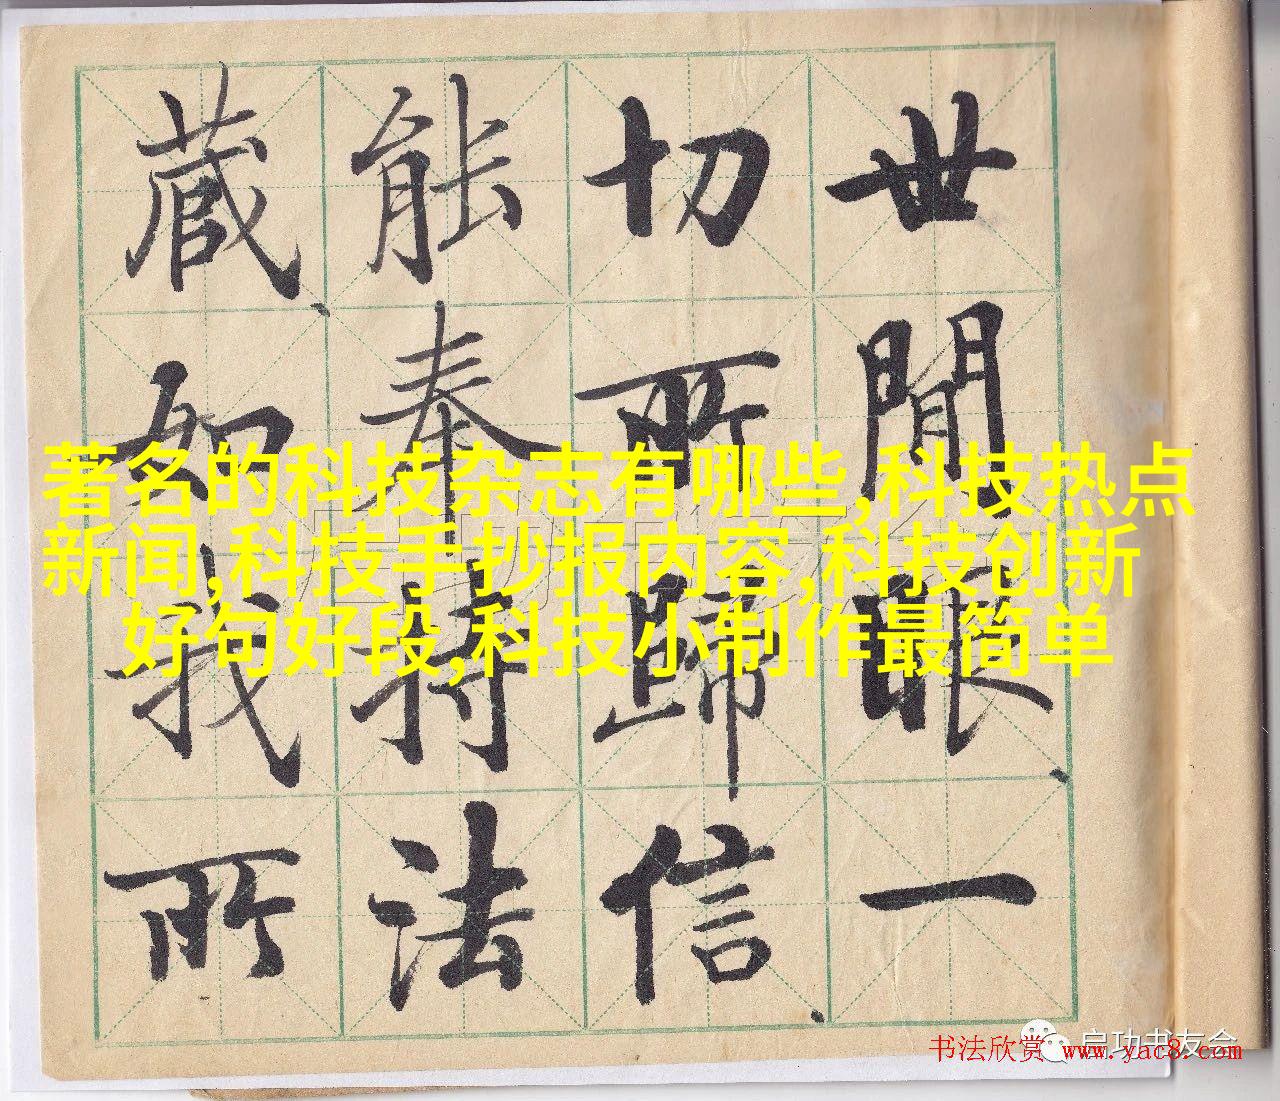 世間眼一
切所歸信
能奉持法
藏如我所
著名的科技杂志有哪些,科技热点
新闻,科技手抄报内容,科技创新
好句好段,科技小制作最简单
启功书友会
书法欣赏 www.yac8.com